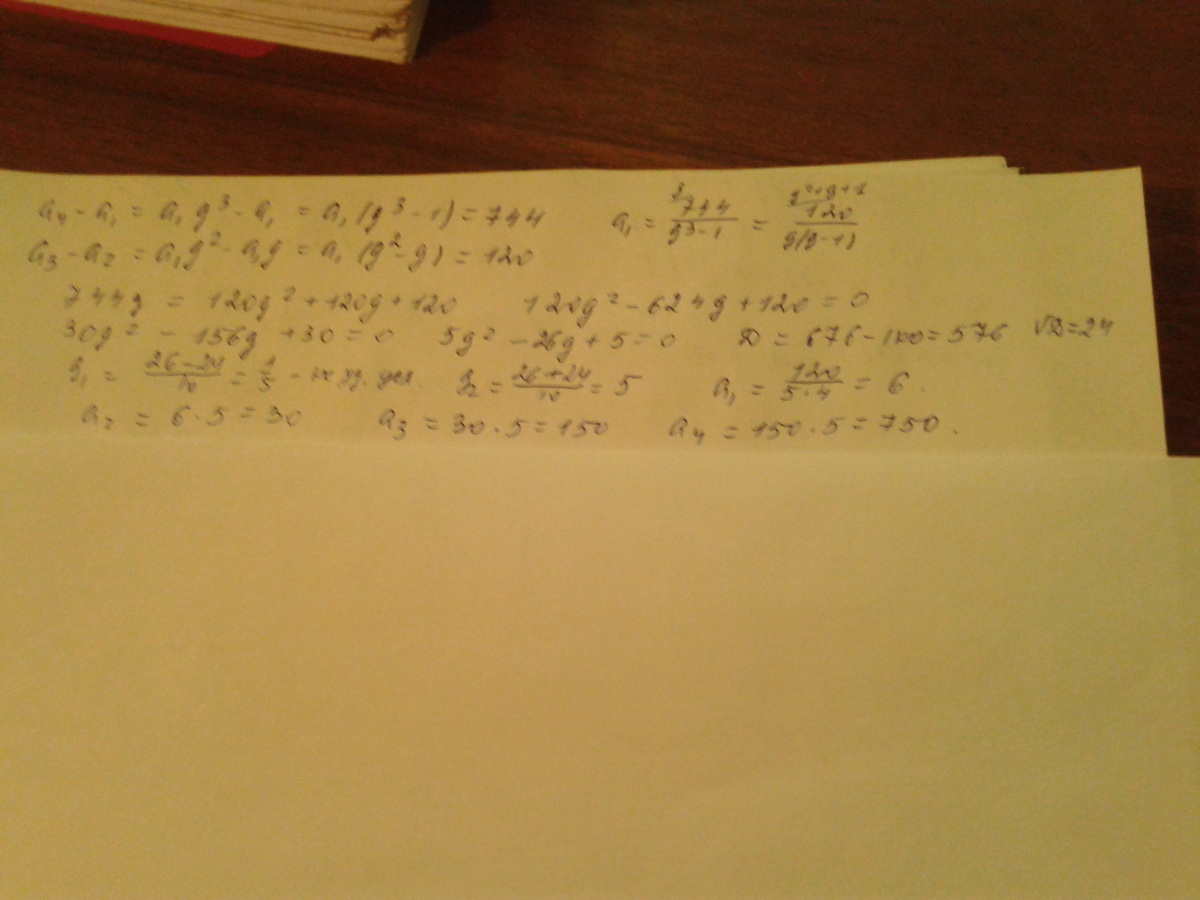 a₄ - a₁ = a₁ g³ - a₁ = a₁ (g³ - 1) = 744 a₁ = 744/(g³-1) = 120/(g(g-1)) g²+g+1
a₃ - a₂ = a₁g² - a₁g = a₁ (g² - g) = 120
744g = 120g² + 120g + 120 120g² - 624g + 120 = 0
30g² - 156g + 30 = 0 5g² - 26g + 5 = 0 D = 676 - 100 = 576 √D = 24
g₁ = (26-24)/10 = 1/5 - g₂ = (26+24)/10 = 5 a₁ = 120/(5·4) = 6.
a₂ = 6·5 = 30 a₃ = 30·5 = 150 a₄ = 150·5 = 750.